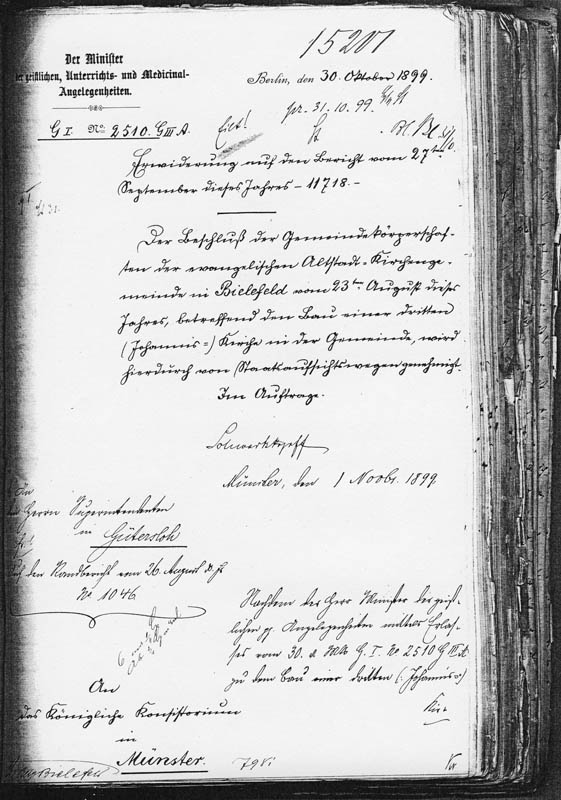 15201
Der Minister
der geistlichen, Unterrichts- und Medicinal-
Angelegenheiten.
Berlin, den 30. Oktober 1899.
pr. 31. 10. 99.
G I. No 2510. G III A.
Eilt!
Erwiderung auf den Bericht vom 27ten
September dieses Jahres – 11718. –
Der Beschluß der Gemeindekörperschaf-
ten der evangelischen Altstadt-Kirchenge-
meinde in Bielefeld vom 23ten August dieses
Jahres, betreffend den Bau einer dritten
(Johannis=) Kirche in der Gemeinde, wird
hierdurch von Staatsaufsichtswegen genehmigt.
Im Auftrage.
Münster, den 1 Novbr. 1899
An
Herrn Superintendenten
in
Gütersloh
den Randbericht vom 26. August d. J.
No 1046.
Nachdem der Herr Minister der geist-
lichen pp. Angelegenheiten mittels Erlas-
ses vom 30. v. Mts G. I. No 2510 G III A
zu dem Bau einer dritten (: Johannis=)
Kir=
An
das Königliche Konsistorium
in
Münster.